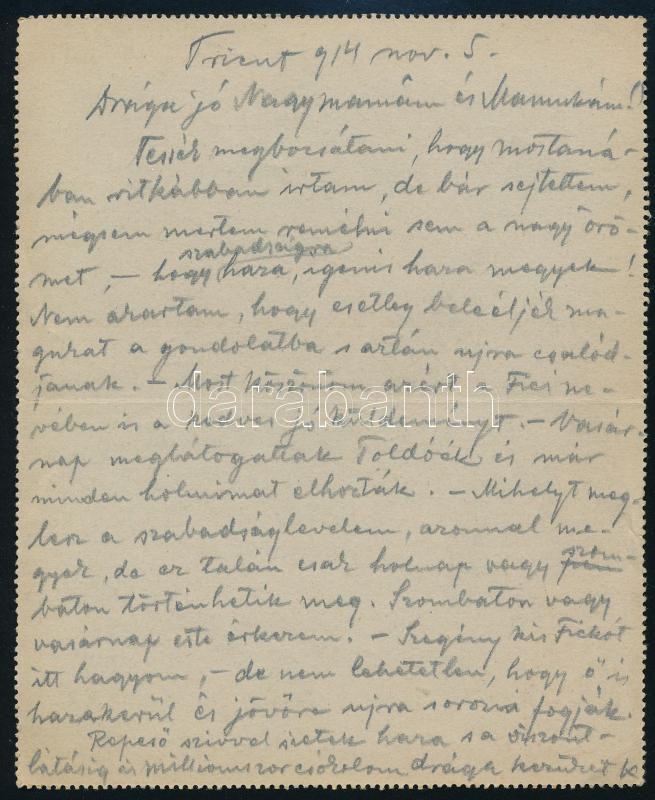 Trient 914 nov. 5.
Drága jó Nagymamám és Mamukám!
Tessék megbocsátani, hogy mostaná-
ban ritkábban írtam, de bár sejtettem,
mégsem mertem remélni sem a nagy örö-
szabadságra
met, – hogy haza, igenis haza megyek!
Nem akartam, hogy esetleg beleéljék ma-
gukat a gondolatba s aztán ujra csalód-
janak. – Most köszönöm azért a Fici ne-
vében is a kedves jó küldeményt. – Vasár-
nap meglátogattak Toldóék és már
minden holmimat elhozták. – Mihelyt meg-
lesz a szabadságlevelem, azonnal me-
gyek, de ez talán csak holnap vagy szom-
baton történhetik meg. Szombaton vagy
vasárnap este érkezem. – Szegény kis Fickót
itt hagyom, – de nem lehetetlen, hogy ő is
hazakerül és jövőre ujra sorozni fogják.
Repeső szivvel sietek haza s a viszont-
látásig is milliomszor csókolom drága kezüket
darabanth